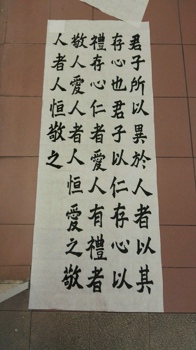 君子所以異於人者以其
存心也君子以仁存心以
禮存心仁者愛人有禮者
敬人愛人者人恒愛之敬
人者人恒敬之